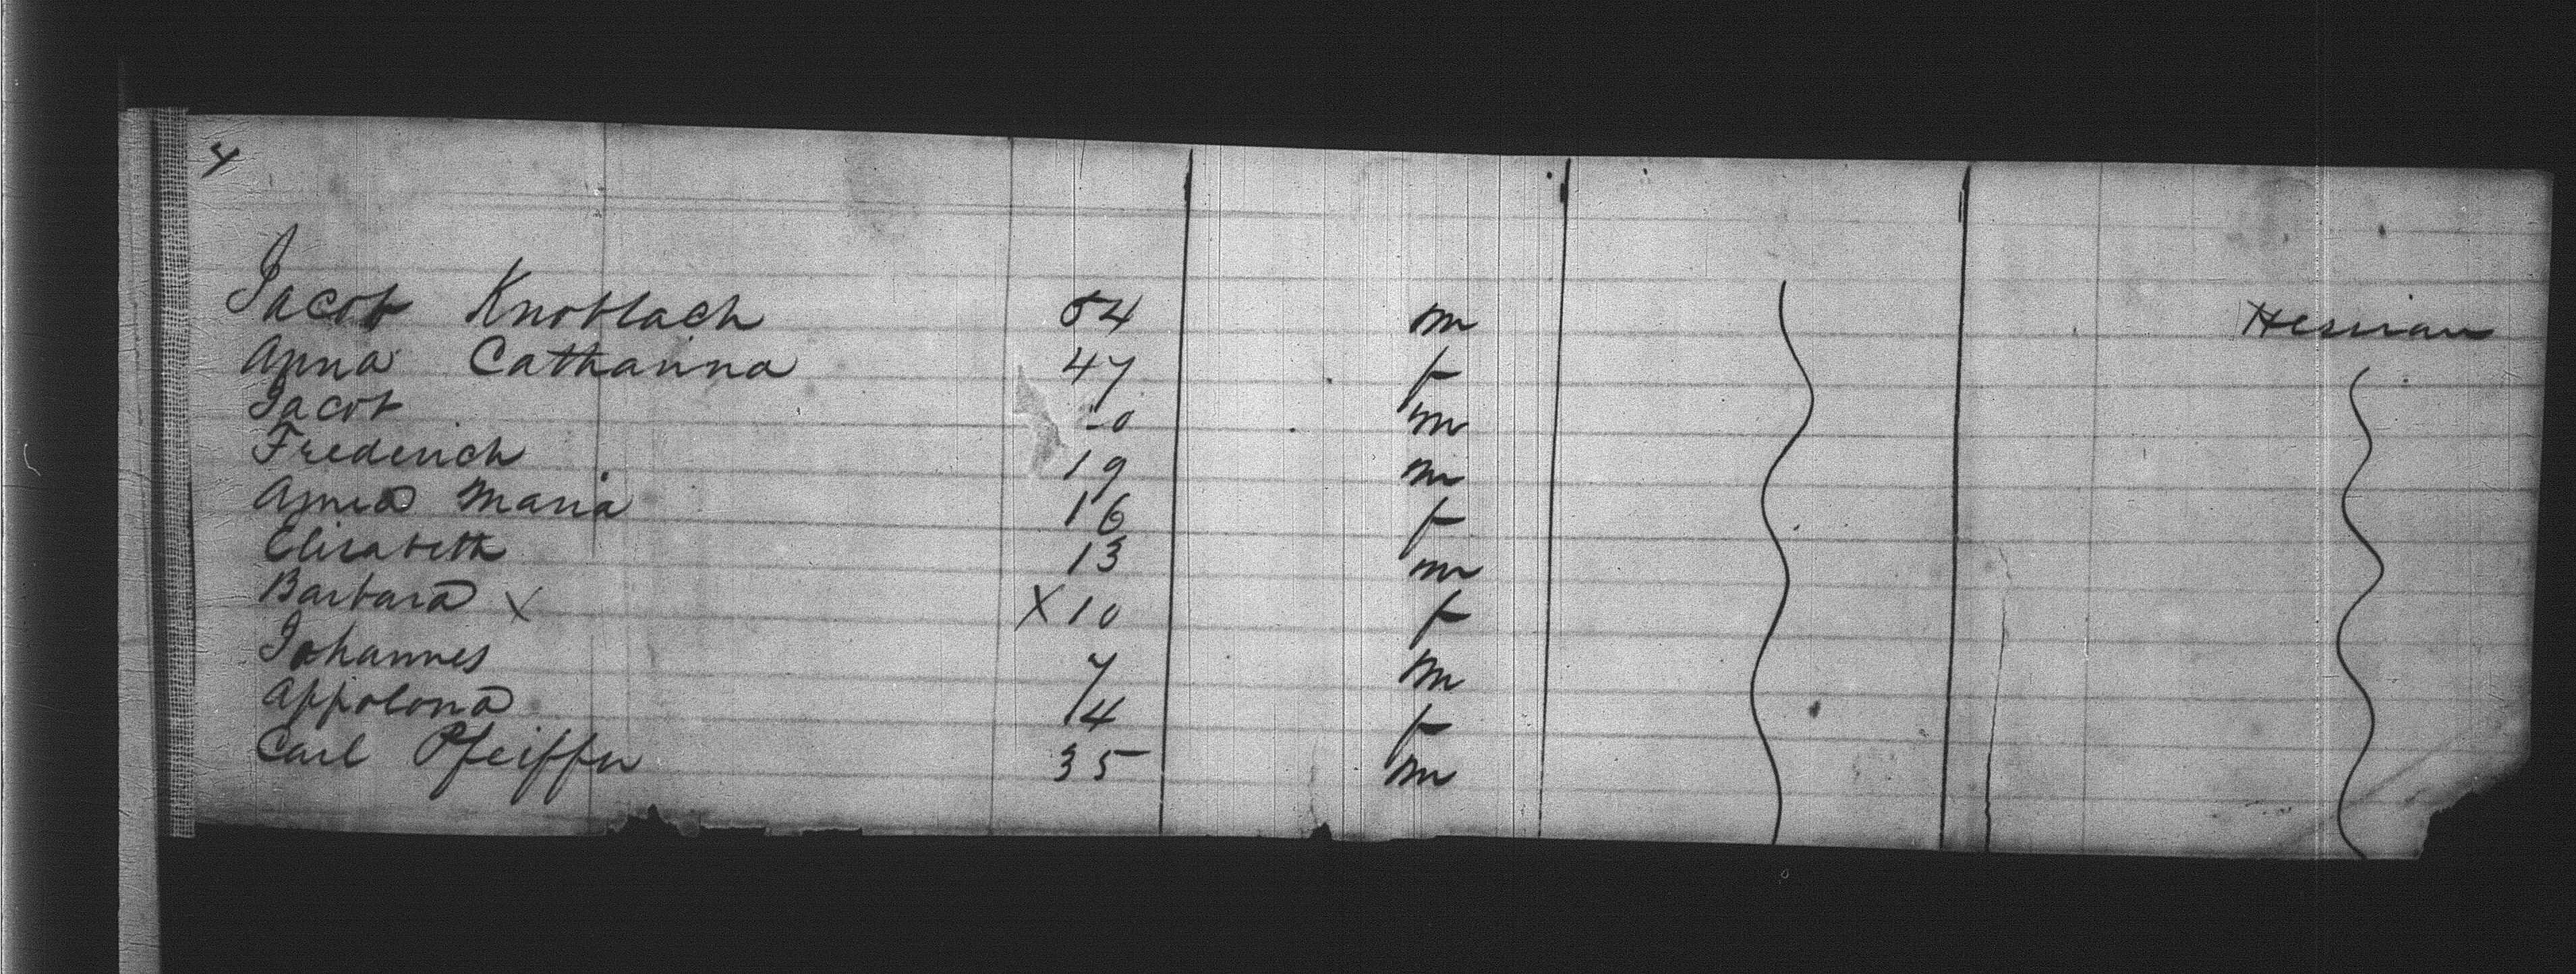 4
Jacob Knoblach 54 m Hessian
Anna Catharina 47 f
Jacob 20 m
Frederich 19 m
Anna Maria 16 f
Elisabeth 13 m
Barbara X X 10 f
Johannes 7 m
Appolona 14 f
Carl Pfeiffer 35 m